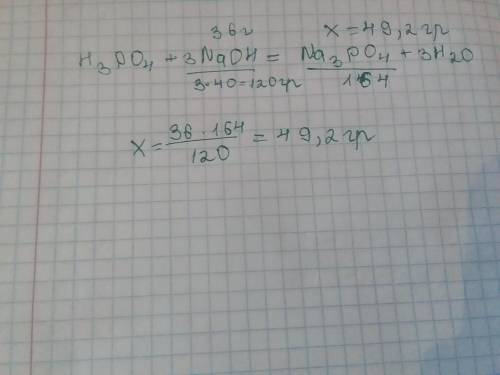 36г x=49,2гр
H3PO4 + 3NaOH = Na3PO4 + 3H2O
3·40=120гр 164
x = 36·164 / 120 = 49,2гр